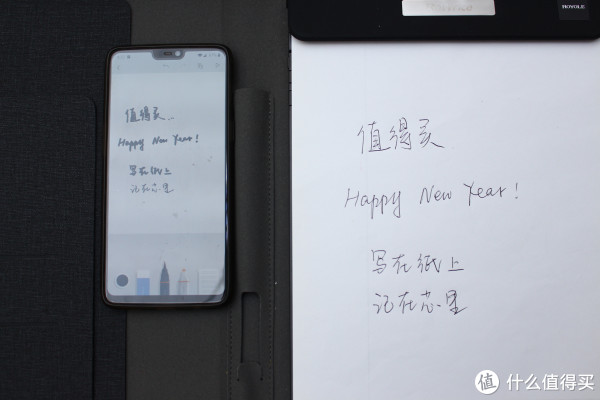 值得买
Happy New Year!
写在纸上
记在芯里
ROYOLE
值得买
Happy New Year!
写在纸上
记在芯里
值 什么值得买